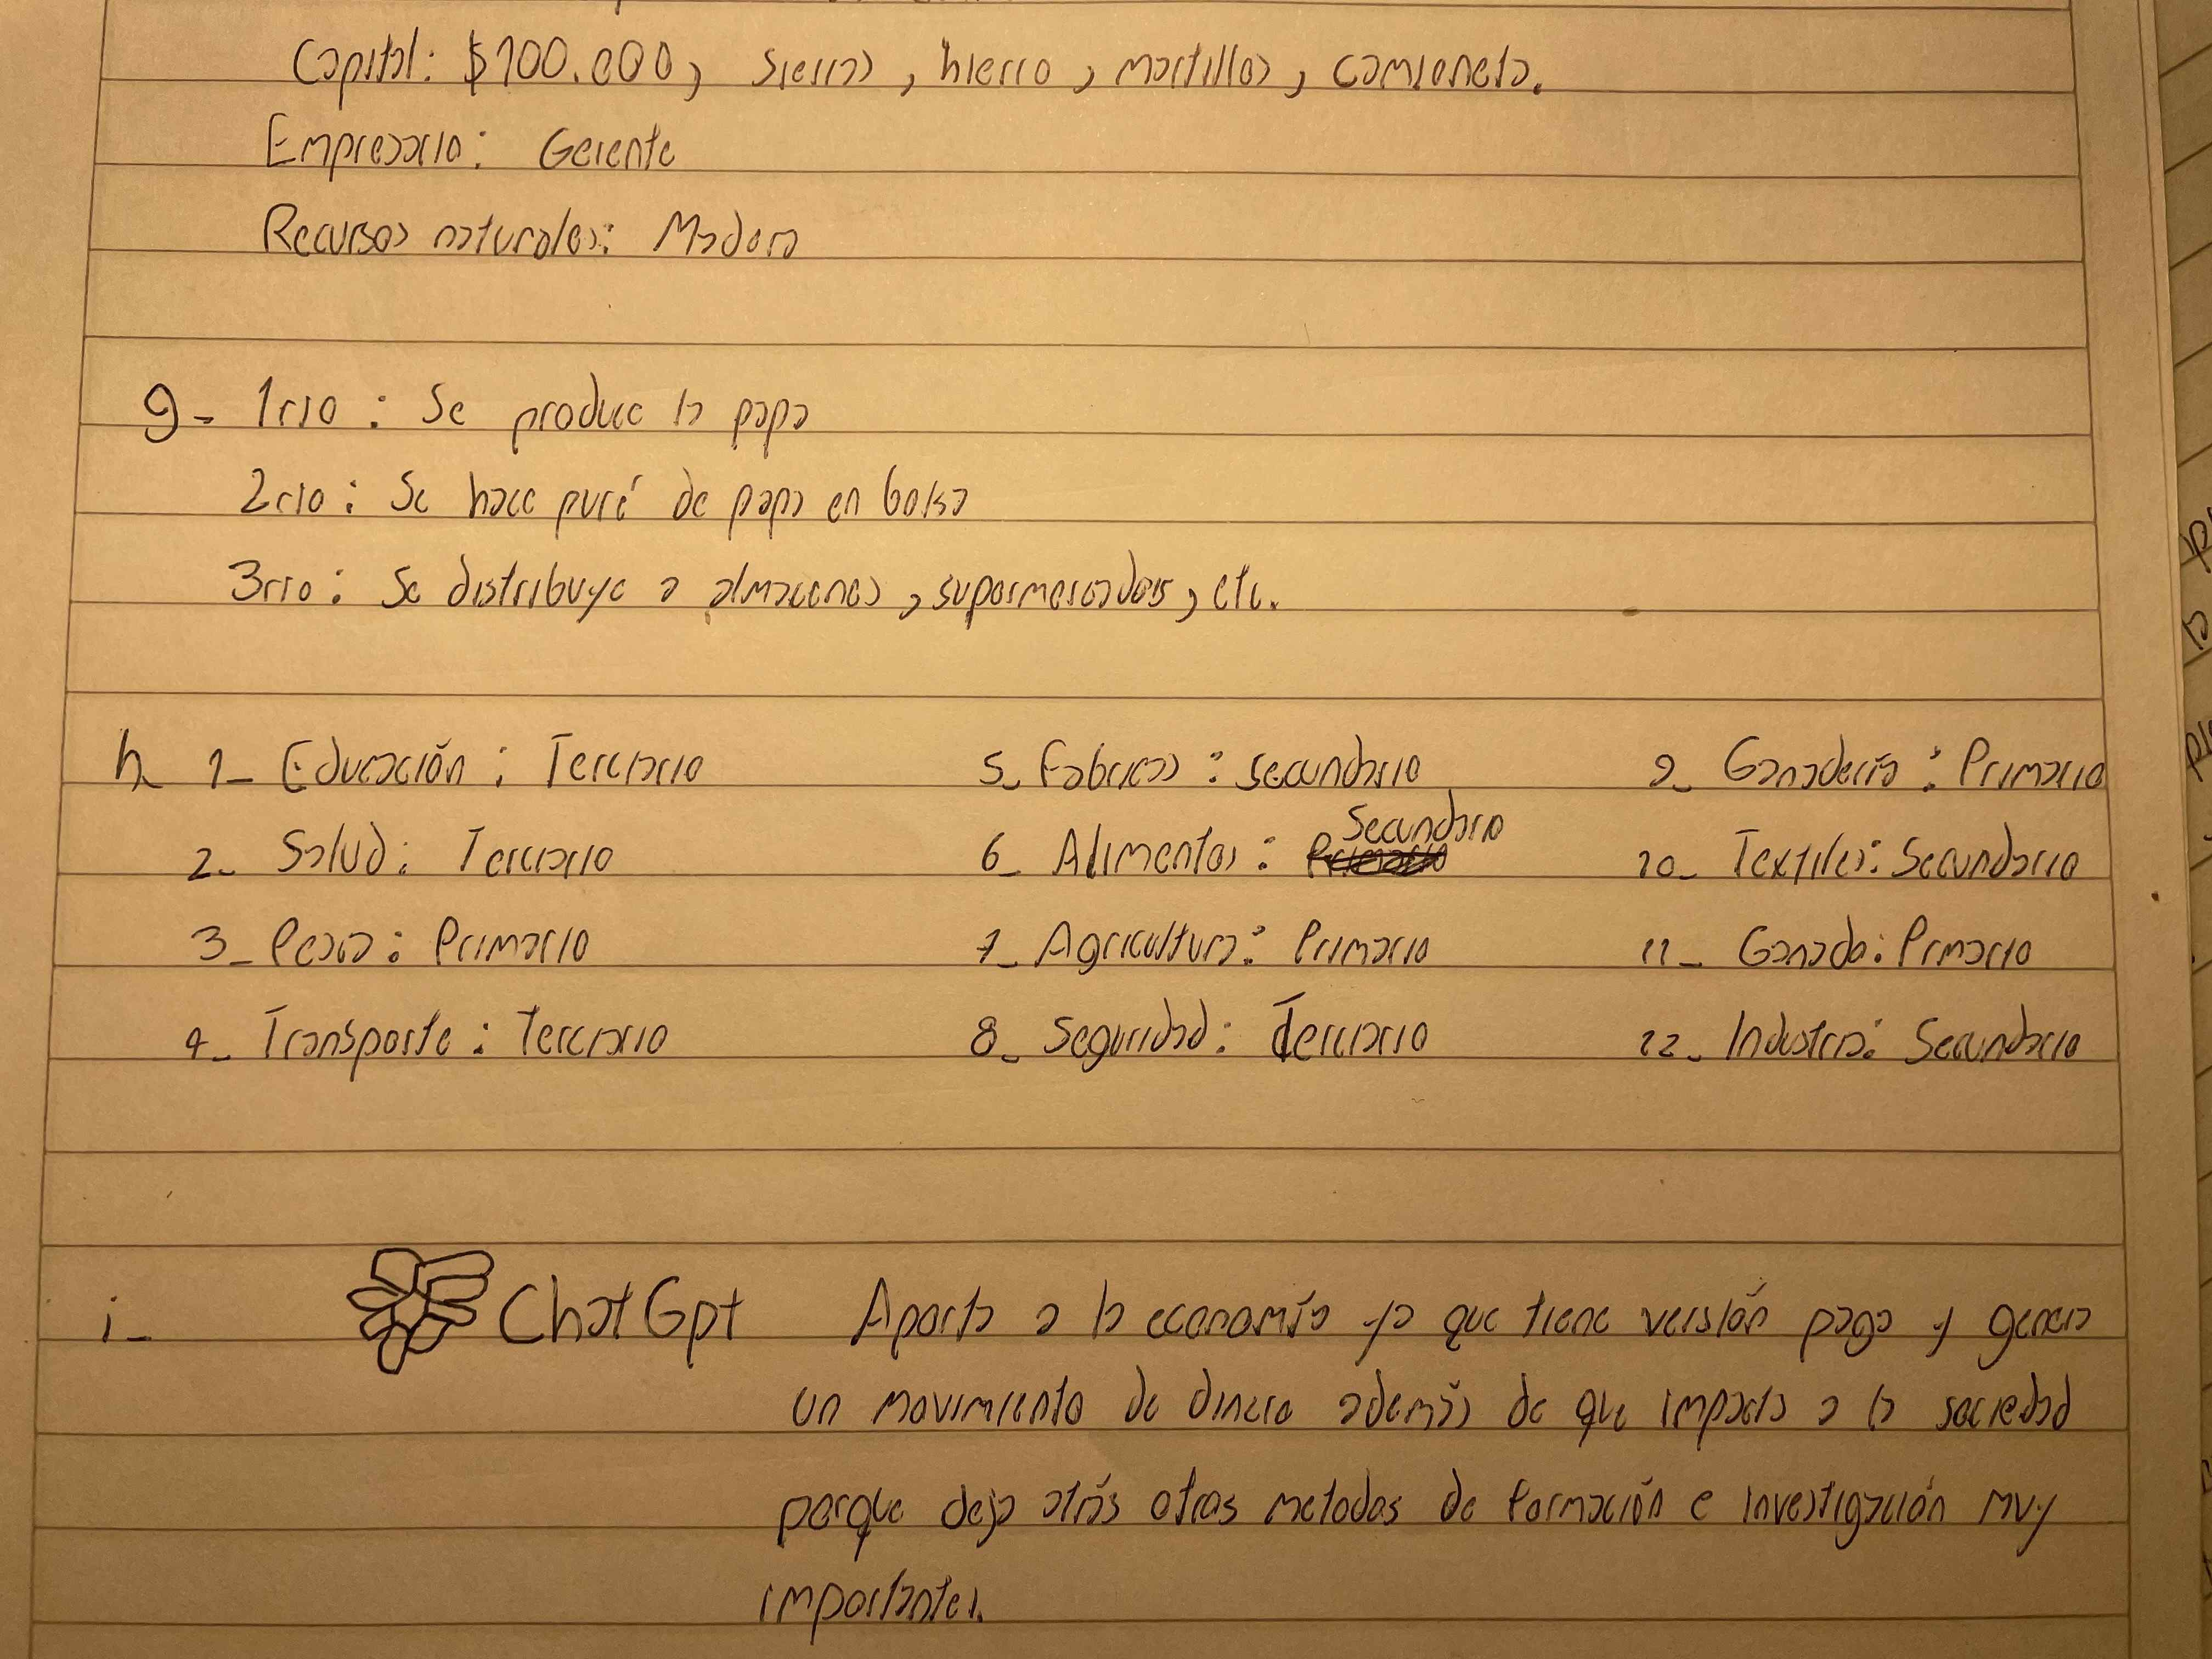 Capital: $100.000, sierras, hierro, martillos, camioneta.
Empresario: Gerente
Recursos naturales: Madera
g- 1rio: Se produce la papa
2rio: Se hace puré de papa en bolsa
3rio: Se distribuye a almacenes, supermercados, etc.
h- 1- Educación: Terciario 5- Fabricas: secundario 9- Ganadería: Primario
2- Salud: Terciario 6- Alimentos: Secundario 10- Textiles: Secundario
3- Pesca: Primario 7- Agricultura: Primario 11- Ganado: Prmario
4- Transporte: Terciario 8- Seguridad: Terciario 12- Industria: Secundario
i- ChatGpt Aporta a la economía ya que tiene versión paga y genera
un movimiento de dinero además de que impacta a la sociedad
porque deja atrás otros metodos de formación e investigación muy
importantes.